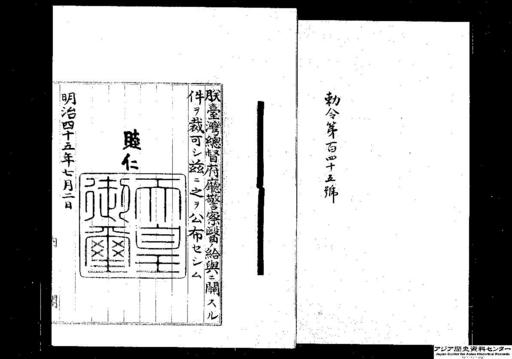 勅令第百四十五號
朕臺灣總督府廳警察醫ノ給與ニ關スル
件ヲ裁可シ茲ニ之ヲ公布セシム
睦仁
天皇御璽
明治四十五年七月二日
内閣
アジア歴史資料センター
Japan Center for Asian Historical Records